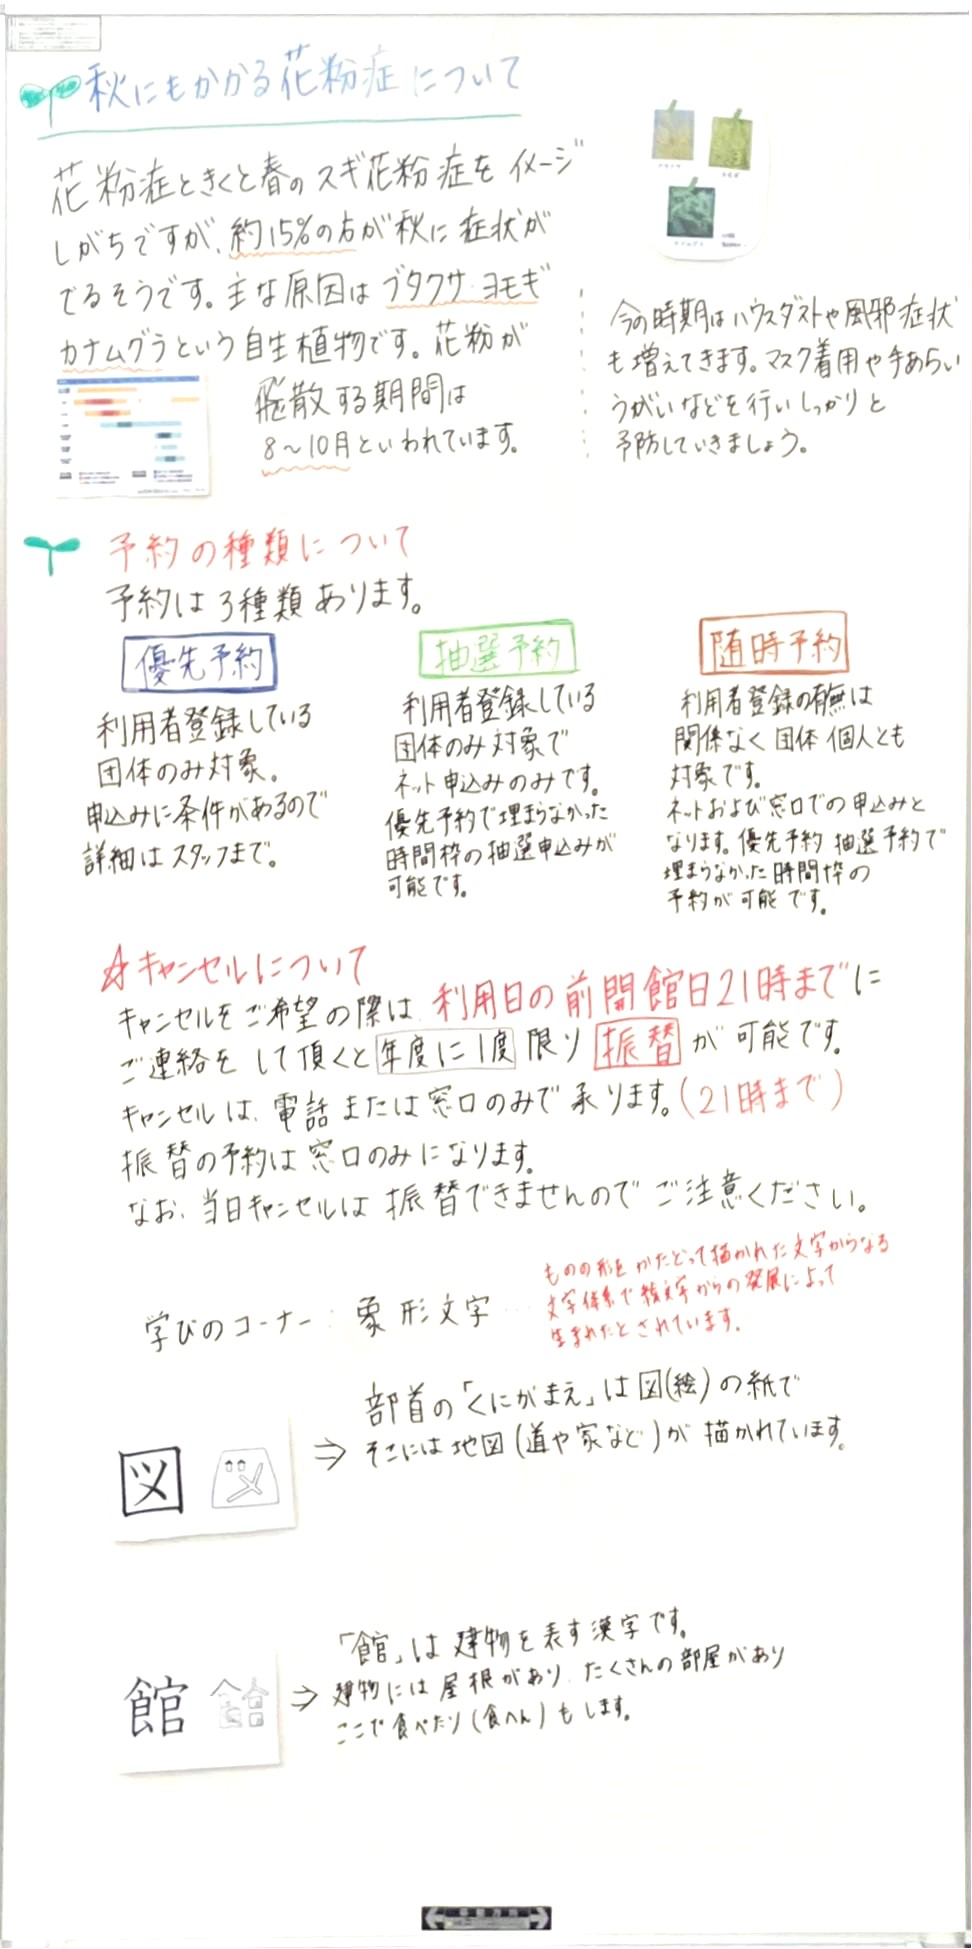 秋にもかかる花粉症について
花粉症ときくと春のスギ花粉症をイメージ
しがちですが、約15%の方が秋に症状が
でるそうです。主な原因はブタクサ・ヨモギ
カナムグラという自生植物です。花粉が
飛散する期間は
8〜10月といわれています。
今の時期はハウスダストや風邪症状
も増えてきます。マスク着用や手あらい
うがいなどを行いしっかりと
予防していきましょう。
予約の種類について
予約は3種類あります。
優先予約
利用者登録している
団体のみ対象。
申込みに条件があるので
詳細はスタッフまで。
抽選予約
利用者登録している
団体のみ対象で
ネット申込みのみです。
優先予約で埋まらなかった
時間枠の抽選申込みが
可能です。
随時予約
利用者登録の有無は
関係なく団体 個人とも
対象です。
ネットおよび窓口での申込みと
なります。優先予約 抽選予約で
埋まらなかった時間枠の
予約が可能です。
☆キャンセルについて
キャンセルをご希望の際は、利用日の前開館日21時までに
ご連絡をして頂くと年度に1度限り振替が可能です。
キャンセルは、電話または窓口のみで承ります。(21時まで)
振替の予約は窓口のみになります。
なお、当日キャンセルは振替できませんのでご注意ください。
学びのコーナー:象形文字…
ものの形をかたどって描かれた文字からなる
文字体系で絵文字からの発展によって
生まれたとされています。
図
⇒
部首の「くにがまえ」は図(絵)の紙で
そこには地図(道や家など)が描かれています。
館
⇒
「館」は建物を表す漢字です。
建物には屋根があり、たくさんの部屋があり
ここで食べたり(食へん)もします。